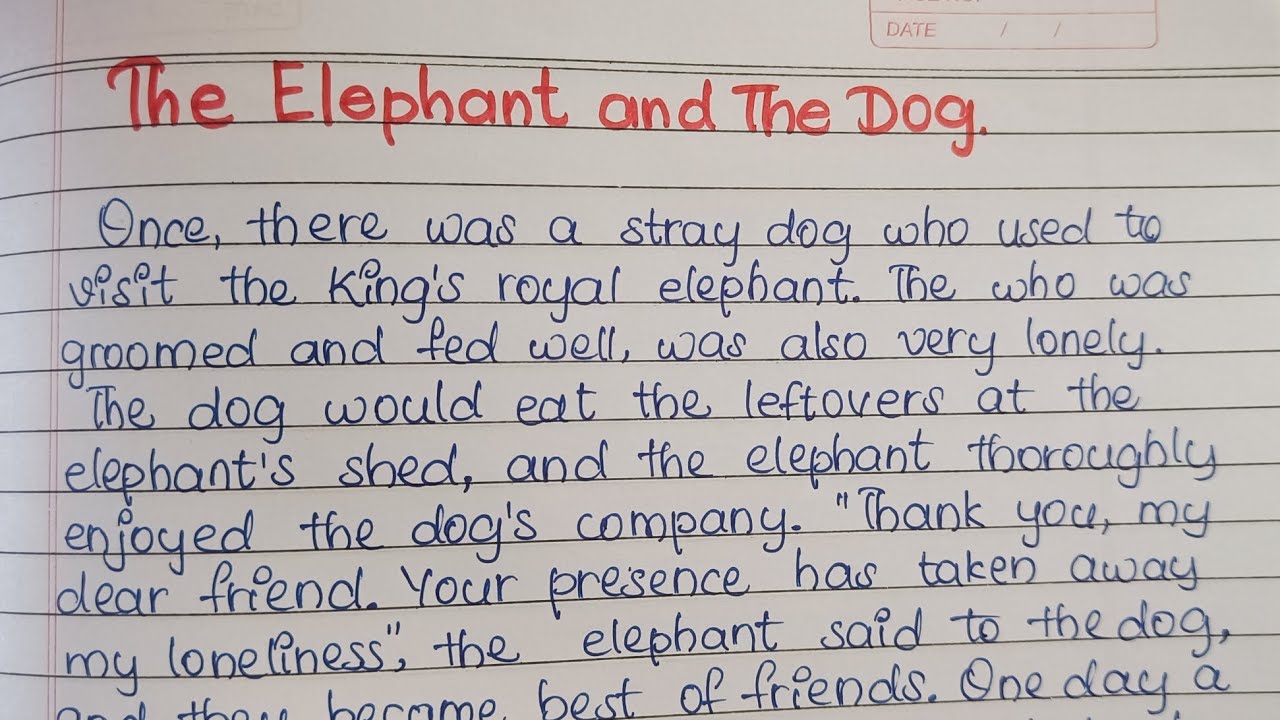 DATE / /
The Elephant and The Dog.
Once, there was a stray dog who used to
visit the King's royal elephant. The who was
groomed and fed well, was also very lonely.
The dog would eat the leftovers at the
elephant's shed, and the elephant thoroughly
enjoyed the dog's company. "Thank you, my
dear friend. Your presence has taken away
my loneliness", the elephant said to the dog,
and they become best of friends. One day a